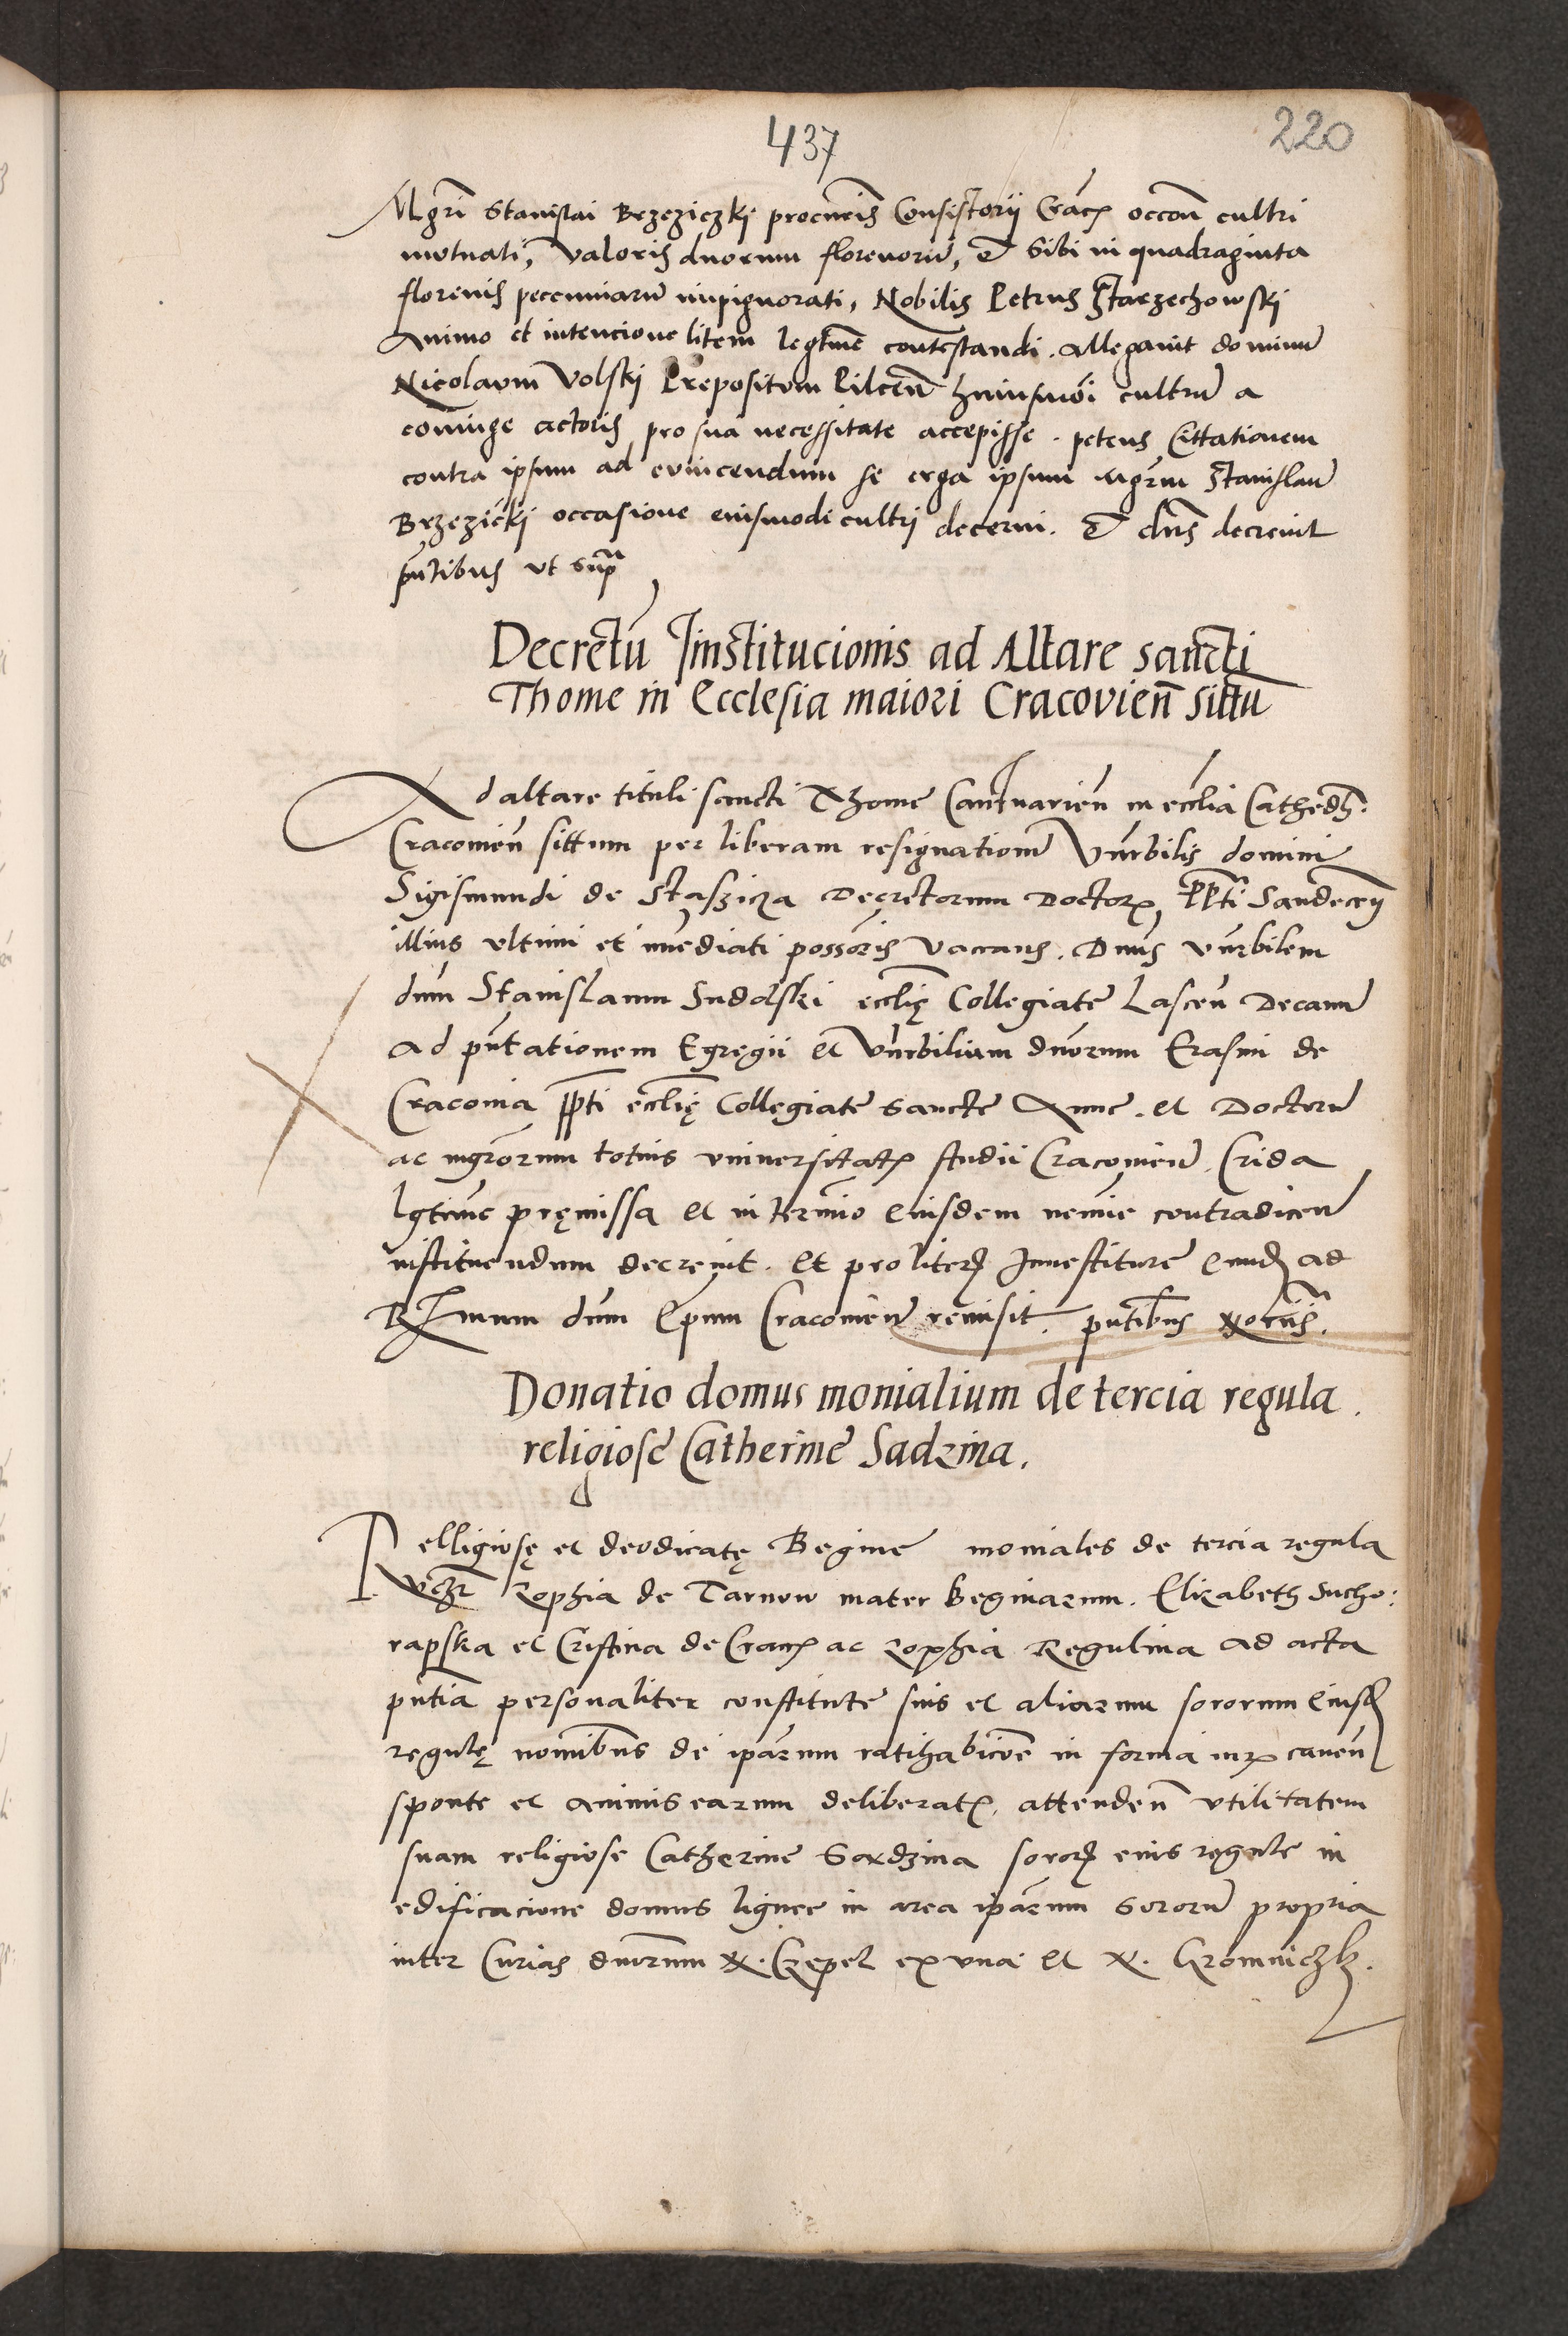 437
220
Mgri Stanislai Brzeziczki procuris Consistorii Crac occon cultri
mutuati, valoris duorum florenoru, et sibi in quadraginta
florenis pecuniaru inpignorati, Nobilis Petrus Starzechowski
Animo et intencione litem legtme contestandi. allegavit dominu
Nicolaum Volski Prepositum Pilcen huiusmoi cultru a
coniuge actoris pro sua necessitate accepisse. petens Cittationem
contra ipsum ad evincendum se erga ipsum mgrm Stanislau
Brzezicki occasione eiusmodi cultri decerni. Et dns decrevit
pntibus ut supra
Decretu Institucionis ad Altare sancti
Thome in Ecclesia maiori Cracovien sittu
Ad altare tituli sancti Thome Cantuarien in ecclia Cathedr.
Cracovien sittum per liberam resignatione Vnrbilis domini
Sigismundi de Stassicza Decretorum Doctor, ppti Sandecen
illius ultimi et imediati possoris vacans. Dnus vnrbilem
dum Stanislaum Sudolski ecclię Collegiate Lascen Decanu
ad pntationem Egręgii et vnrbilium dnorum Erasmi de
Cracovia ppti ecclię Collegiate sancte Anne. et Doctoru
ac mgrorum totius universitat studii Cracovien. Crida
lgtime pręmissa et in termio eiusdem nemie contradicen
instituendum decrevit. et pro literis Investiture eiusd ad
Rmum dum Epum Cracovien remisit. pntibus
Donatio domus monialium de tercia regula.
religiose Catherine Sadzina.
Relligiosę et deodicatę Begine moniales de tercia regula
vczt Zophia de Tarnow mater beginarum. Elizabeth Sucho:
rapska et Cristina de Crac ac Zophia Regulina ad acta
pntia personaliter constitute suis et aliarum sororum eiusd
regulę nomibus de iparum ratihabicoe in forma iur caven
sponte et animis earum deliberat, attenden utilitatem
suam religiose Catherine Sadzina soror eius regule in
edificacione domus lignee in area iparum sororu propria
inter Curias dnorum N. Czepel ex una et N. Gromniczk.